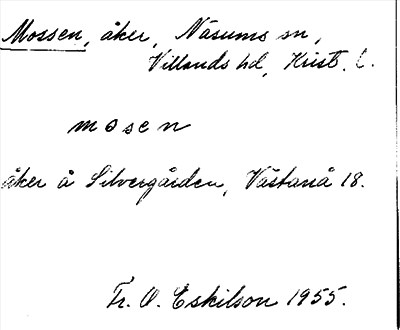 Mossen, åker, Näsums sn,
Villands hd, Krist. l.
mosen
åker å Silvergården, Västanå 18.
Fr. O. Eskilson 1955.